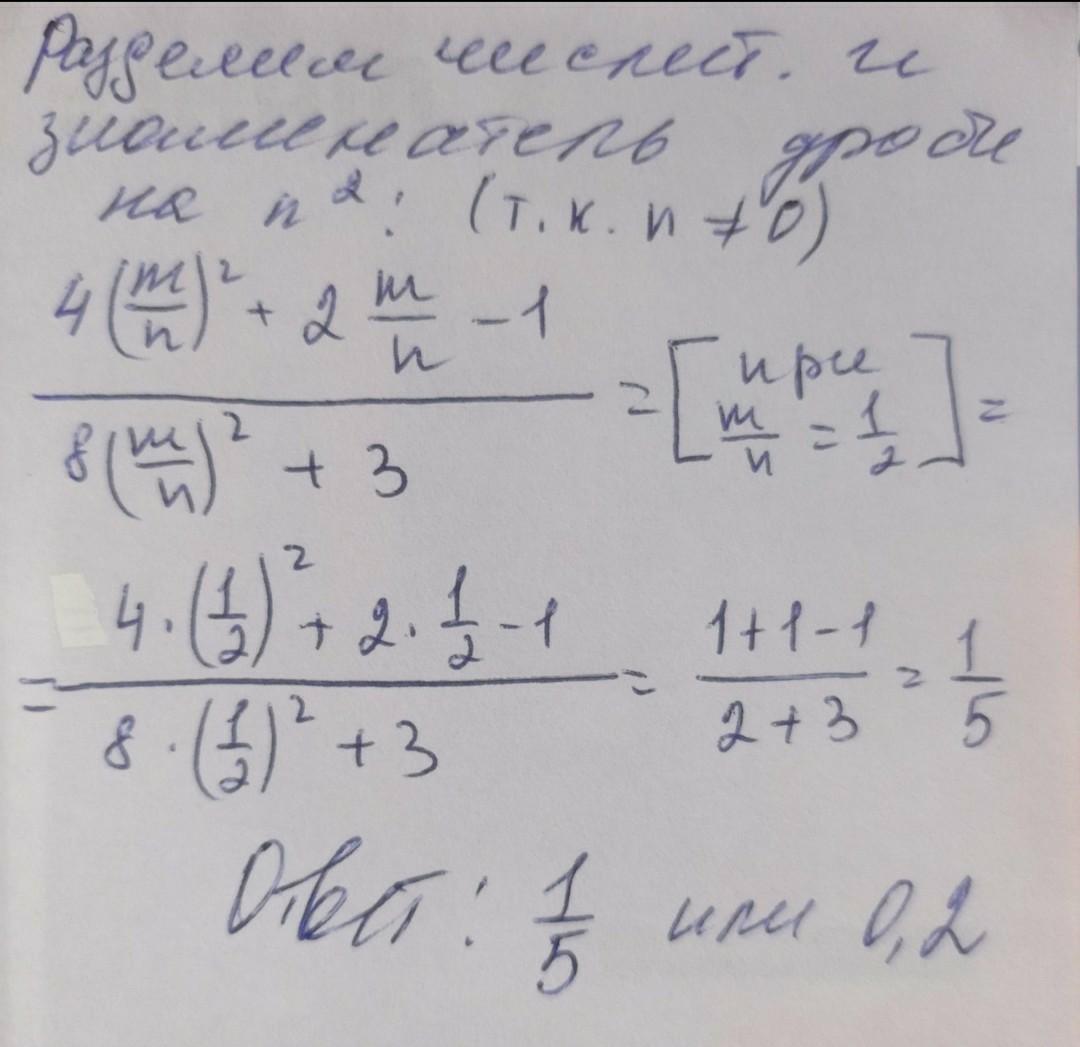 Разделим числит. и
знаменатель дроби
на n²: (т.к. n ≠ 0)
(4(m/n)² + 2 m/n - 1) / (8(m/n)² + 3) = [при m/n = 1/2] =
= (4·(1/2)² + 2·1/2 - 1) / (8·(1/2)² + 3) = (1+1-1)/(2+3) = 1/5
Ответ: 1/5 или 0,2